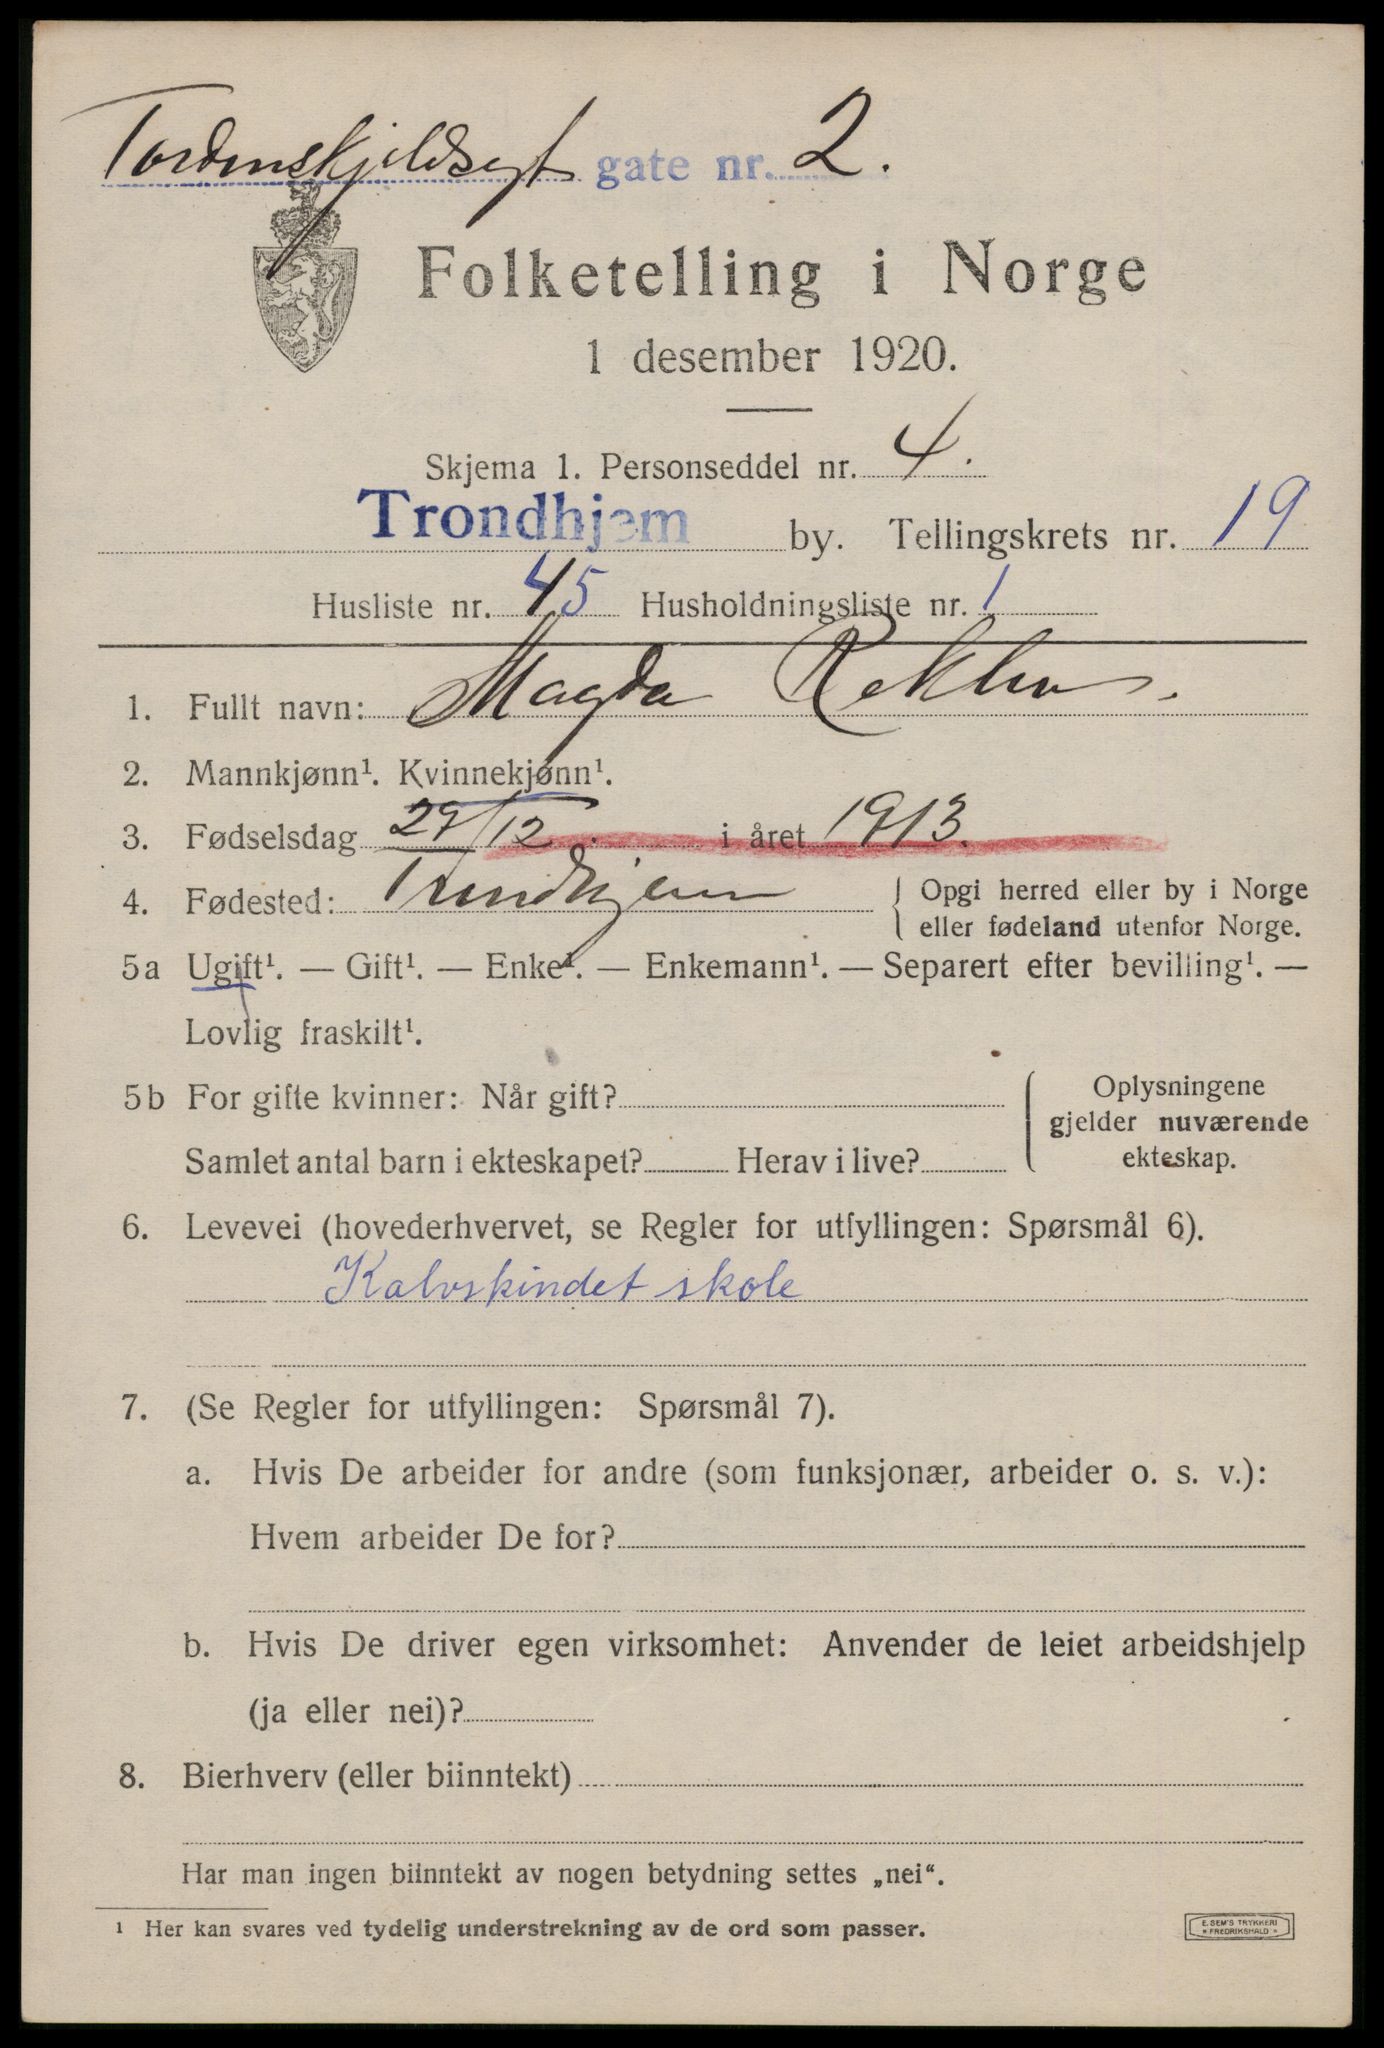 Tordenskjoldsgt gate nr. 2.
Folketelling i Norge
1 desember 1920.
Skjema 1. Personseddel nr. 4.
Trondhjem by. Tellingskrets nr. 19
Husliste nr. 45 Husholdningsliste nr. 1
1. Fullt navn: Magda
2. Mannkjønn¹. Kvinnekjønn¹.
3. Fødselsdag 29/12. i året 1913.
4. Fødested: Trondhjem { Opgi herred eller by i Norge
eller fødeland utenfor Norge.
5a Ugift¹. — Gift¹. — Enke¹. — Enkemann¹. — Separert efter bevilling¹. —
Lovlig fraskilt¹.
5b For gifte kvinner: Når gift? { Oplysningene
gjelder nuværende
Samlet antal barn i ekteskapet? Herav i live? ekteskap.
6. Levevei (hovederhvervet, se Regler for utfyllingen: Spørsmål 6).
Kalvskindet skole
7. (Se Regler for utfyllingen: Spørsmål 7).
a. Hvis De arbeider for andre (som funksjonær, arbeider o. s. v.):
Hvem arbeider De for?
b. Hvis De driver egen virksomhet: Anvender de leiet arbeidshjelp
(ja eller nei)?
8. Bierhverv (eller biinntekt)
Har man ingen biinntekt av nogen betydning settes „nei“.
¹ Her kan svares ved tydelig understrekning av de ord som passer.
E. SEM'S TRYKKERI
* FREDRIKSHALD *